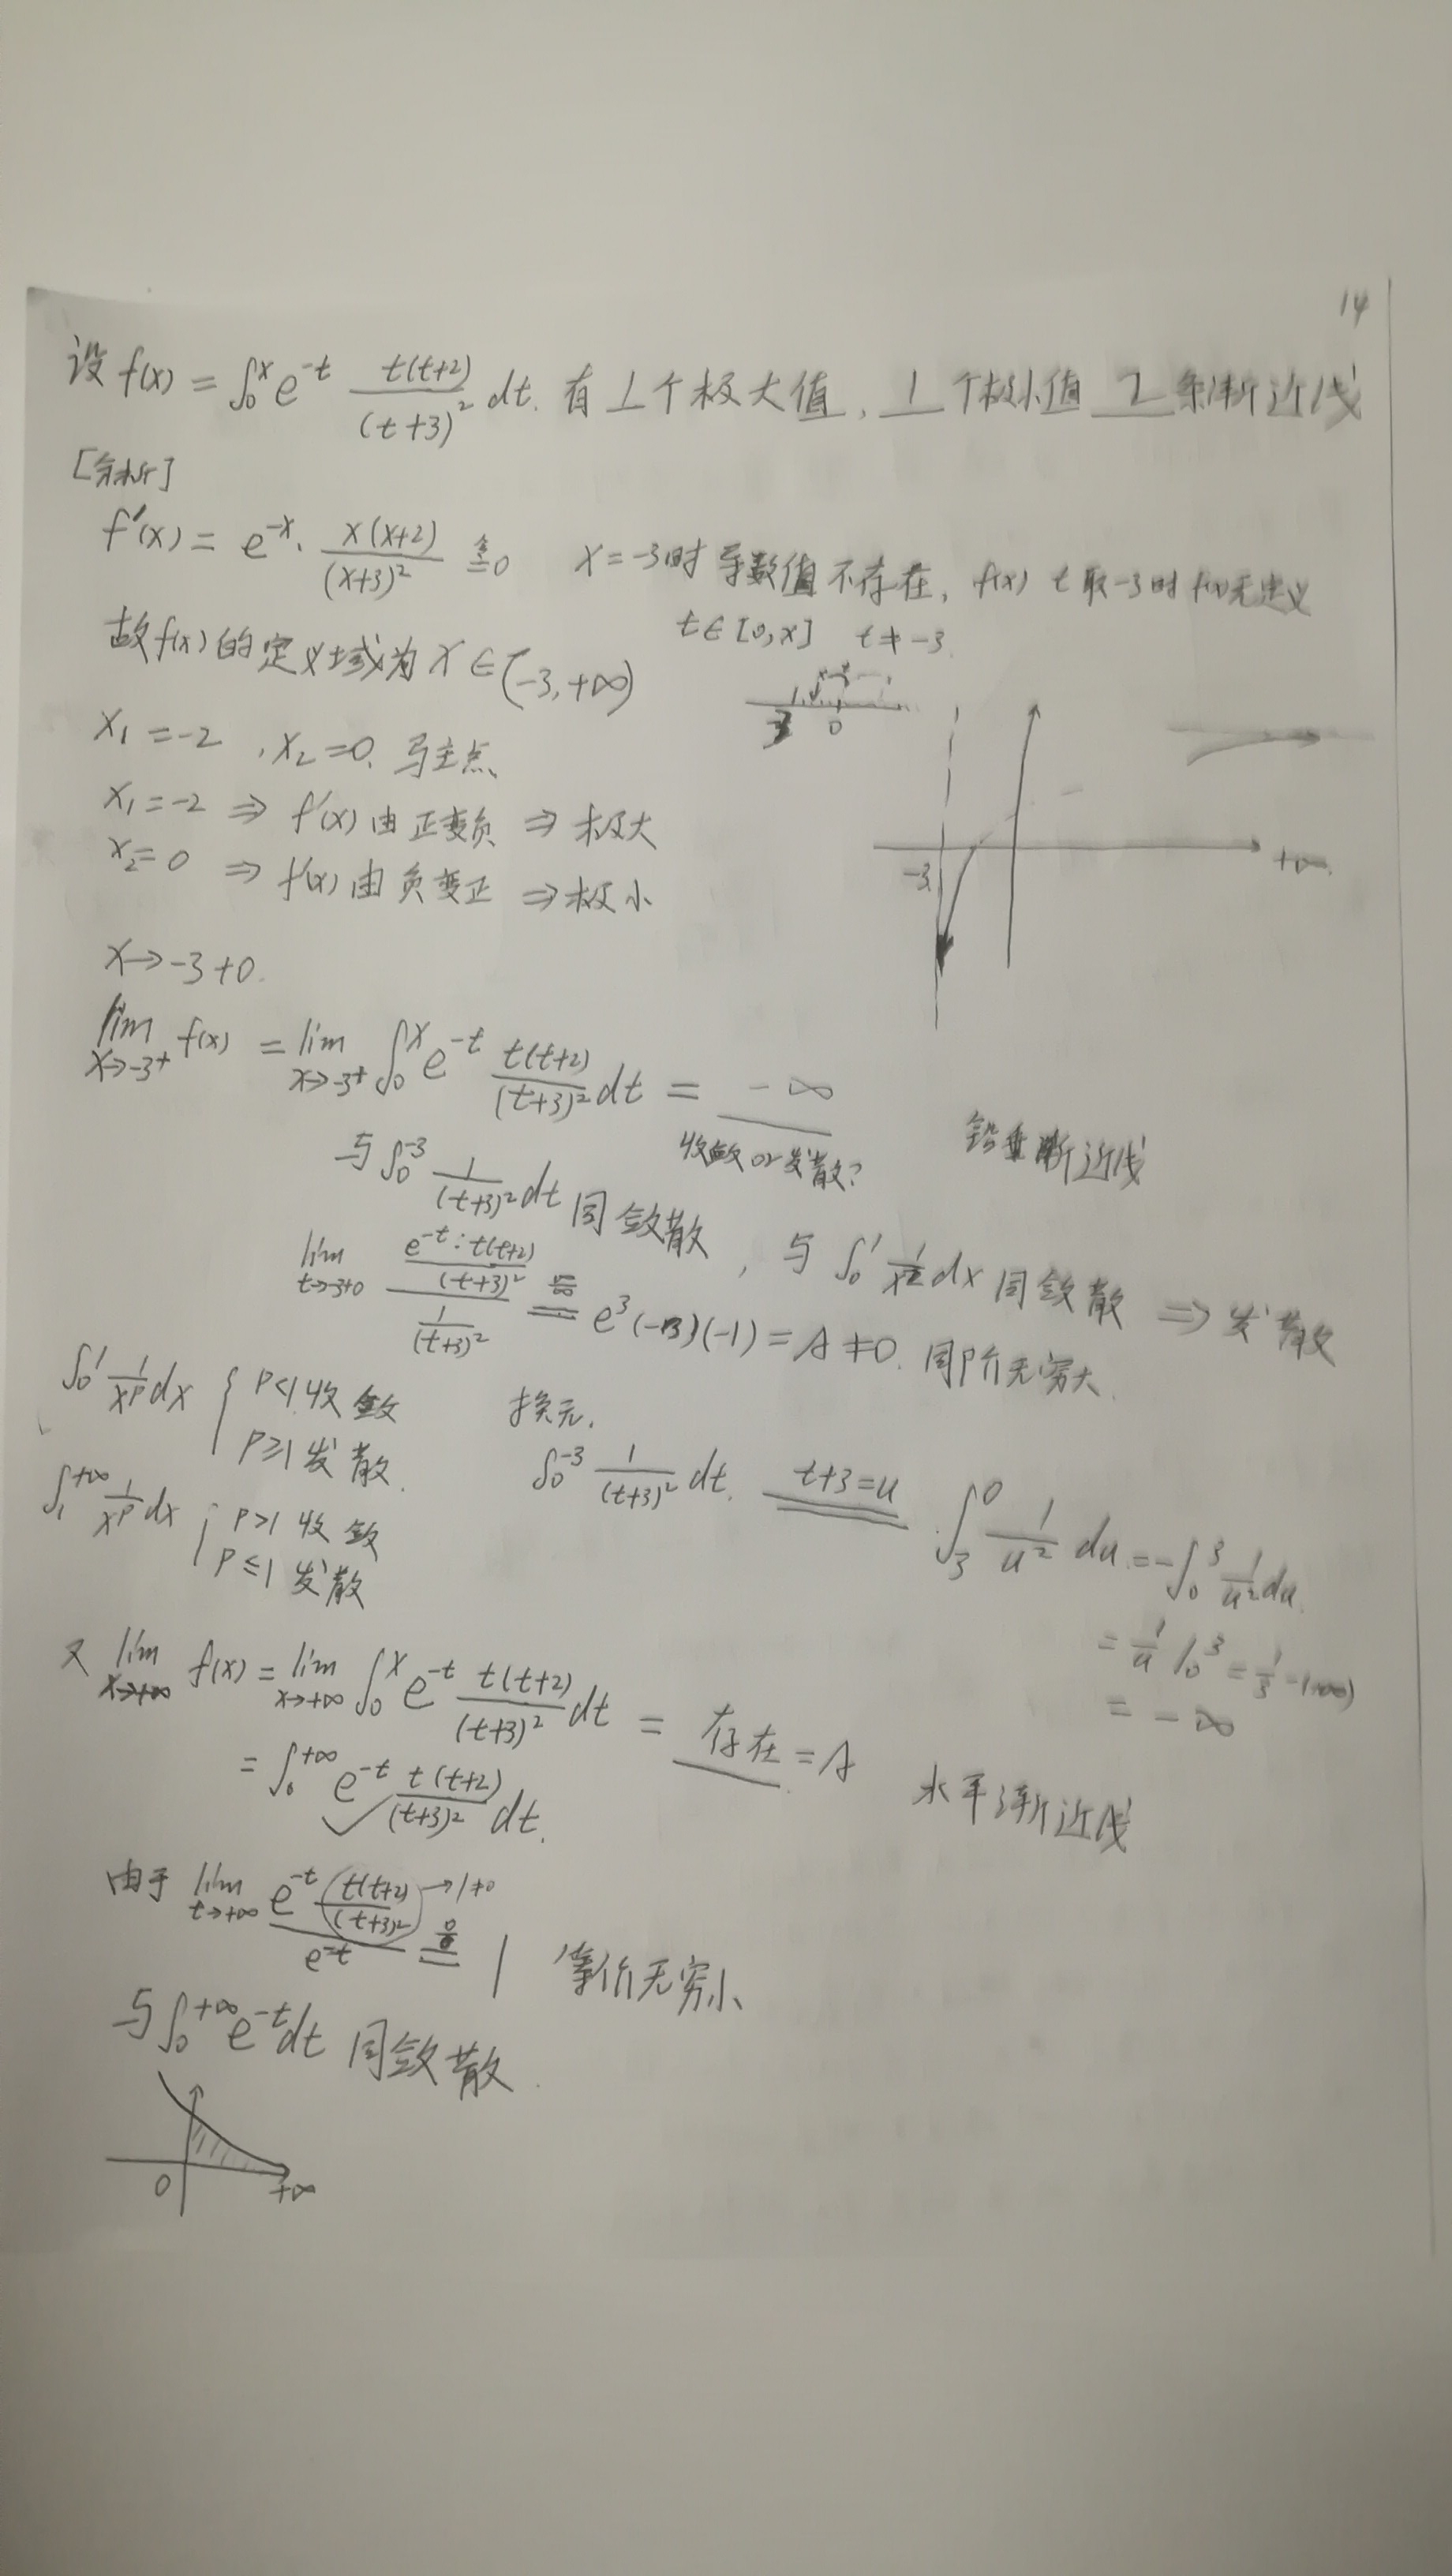 14
设 f(x) = ∫₀ˣ e⁻ᵗ t(t+2)/(t+3)² dt. 有 1 个极大值, 1 个极小值 2 条渐近线
[分析]
f'(x) = e⁻ˣ · x(x+2)/(x+3)² ≜ 0 x = -3时 导数值不存在, f(x) t 取-3时 f(x)无定义
t∈[0,x] t≠-3.
故f(x)的定义域为 x∈(-3,+∞)
3 0
x₁ = -2 , x₂ = 0. 驻点
x₁ = -2 ⇒ f'(x) 由正变负 ⇒ 极大
x₂ = 0 ⇒ f'(x) 由负变正 ⇒ 极小
-3 +∞
x→-3+0.
lim x→-3⁺ f(x) = lim x→-3⁺ ∫₀ˣ e⁻ᵗ t(t+2)/(t+3)² dt = -∞
收敛 or 发散? 铅垂渐近线
与 ∫₀⁻³ 1/(t+3)² dt 同敛散, 与 ∫₀¹ 1/x² dx 同敛散 ⇒ 发散
lim t→-3+0 (e⁻ᵗ·t(t+2)/(t+3)²)/(1/(t+3)²) = e³(-3)(-1) = A ≠ 0. 同阶无穷大.
∫₀¹ 1/xᵖ dx { p<1 收敛
p≥1 发散.
∫₁⁺∞ 1/xᵖ dx { p>1 收敛
p≤1 发散
换元.
∫₀⁻³ 1/(t+3)² dt. t+3=u ∫₃⁰ 1/u² du = -∫₀³ 1/u² du.
= 1/u |₀³ = 1/3 - (+∞)
= -∞
又 lim x→+∞ f(x) = lim x→+∞ ∫₀ˣ e⁻ᵗ t(t+2)/(t+3)² dt = 存在 = A
= ∫₀⁺∞ e⁻ᵗ t(t+2)/(t+3)² dt. 水平渐近线
由于 lim t→+∞ (e⁻ᵗ t(t+2)/(t+3)²)/e⁻ᵗ →1≠0 0/0 = 1 等价无穷小
与 ∫₀⁺∞ e⁻ᵗ dt 同敛散.
0 +∞